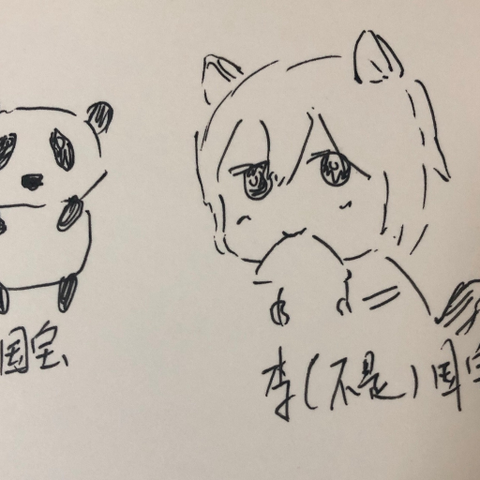 国宝
李(不是)国宝